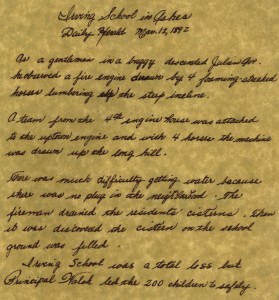 Irving School in Ashes
Daily Herald Mar. 12, 1892
As a gentleman in a buggy descended Julien Ave.
he observed a fire engine drawn by 4 foaming-flecked
horses lumbering up the steep incline.
A team from the 4th engine house was attached
to the uptown engine and with 4 horses the machine
was drawn up the long hill.
There was much difficulty getting water because
there was no plug in the neighborhood. The
fireman drained the residents cisterns. Then
it was discovered the cistern on the school
ground was filled.
Irving School was a total loss but
Principal Welsh led the 200 children to safety.